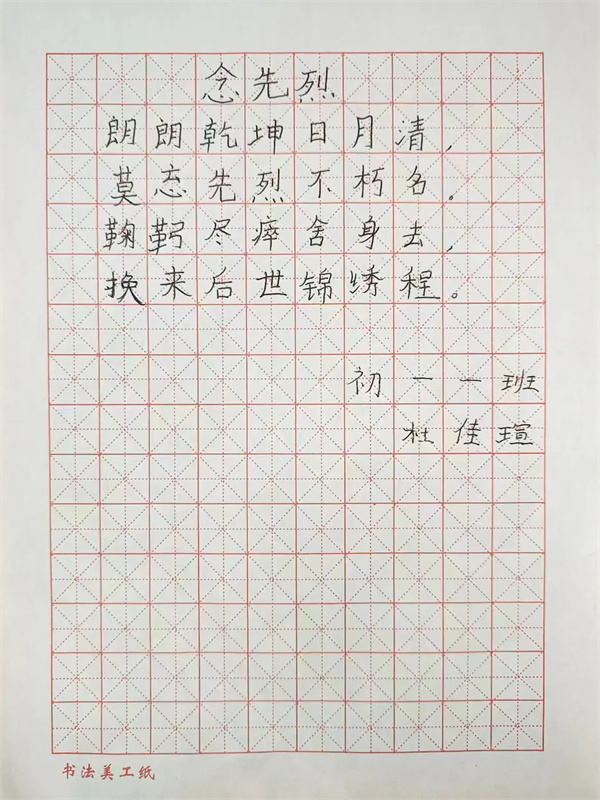 念先烈
朗朗乾坤日月清，
莫忘先烈不朽名。
鞠躬尽瘁舍身去，
换来后世锦绣程。
初一一班
杜佳瑄
书法美工纸